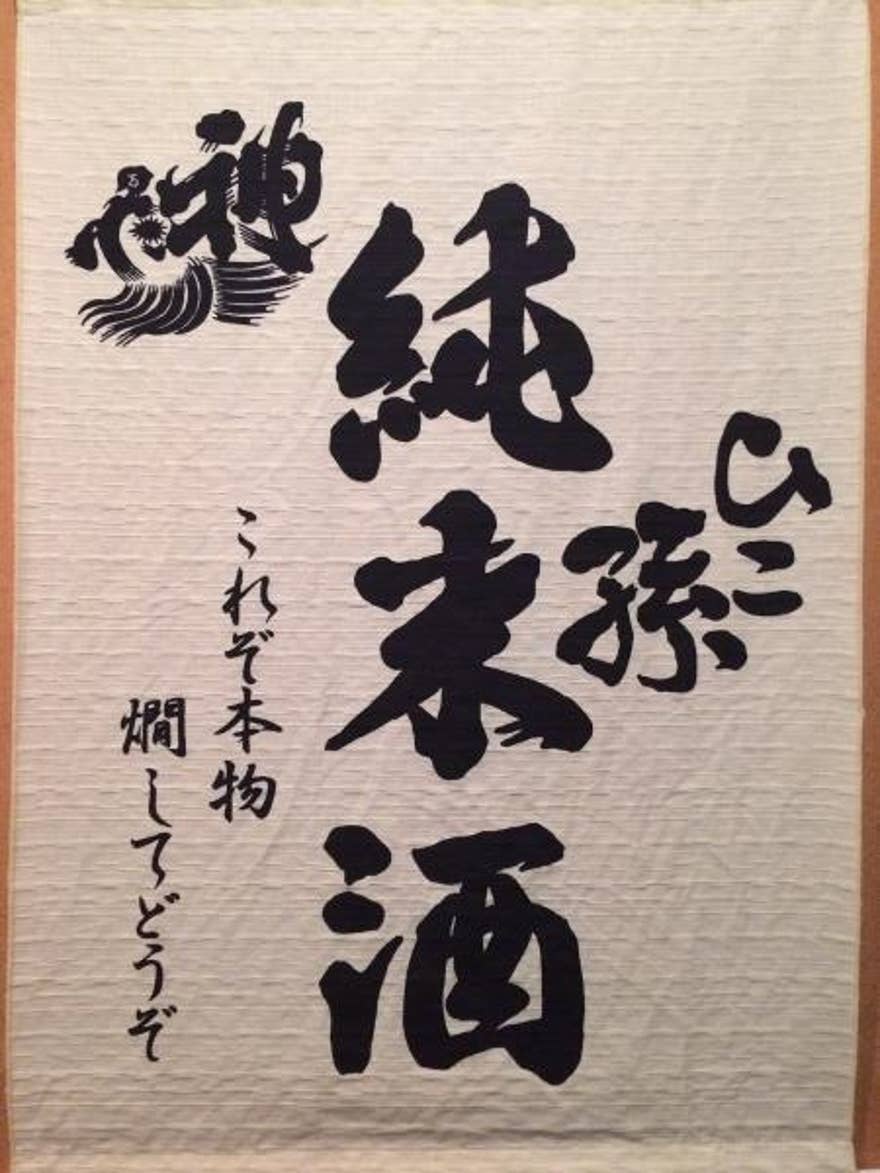 ひこ孫
純米酒
これぞ本物
燗してどうぞ
神亀